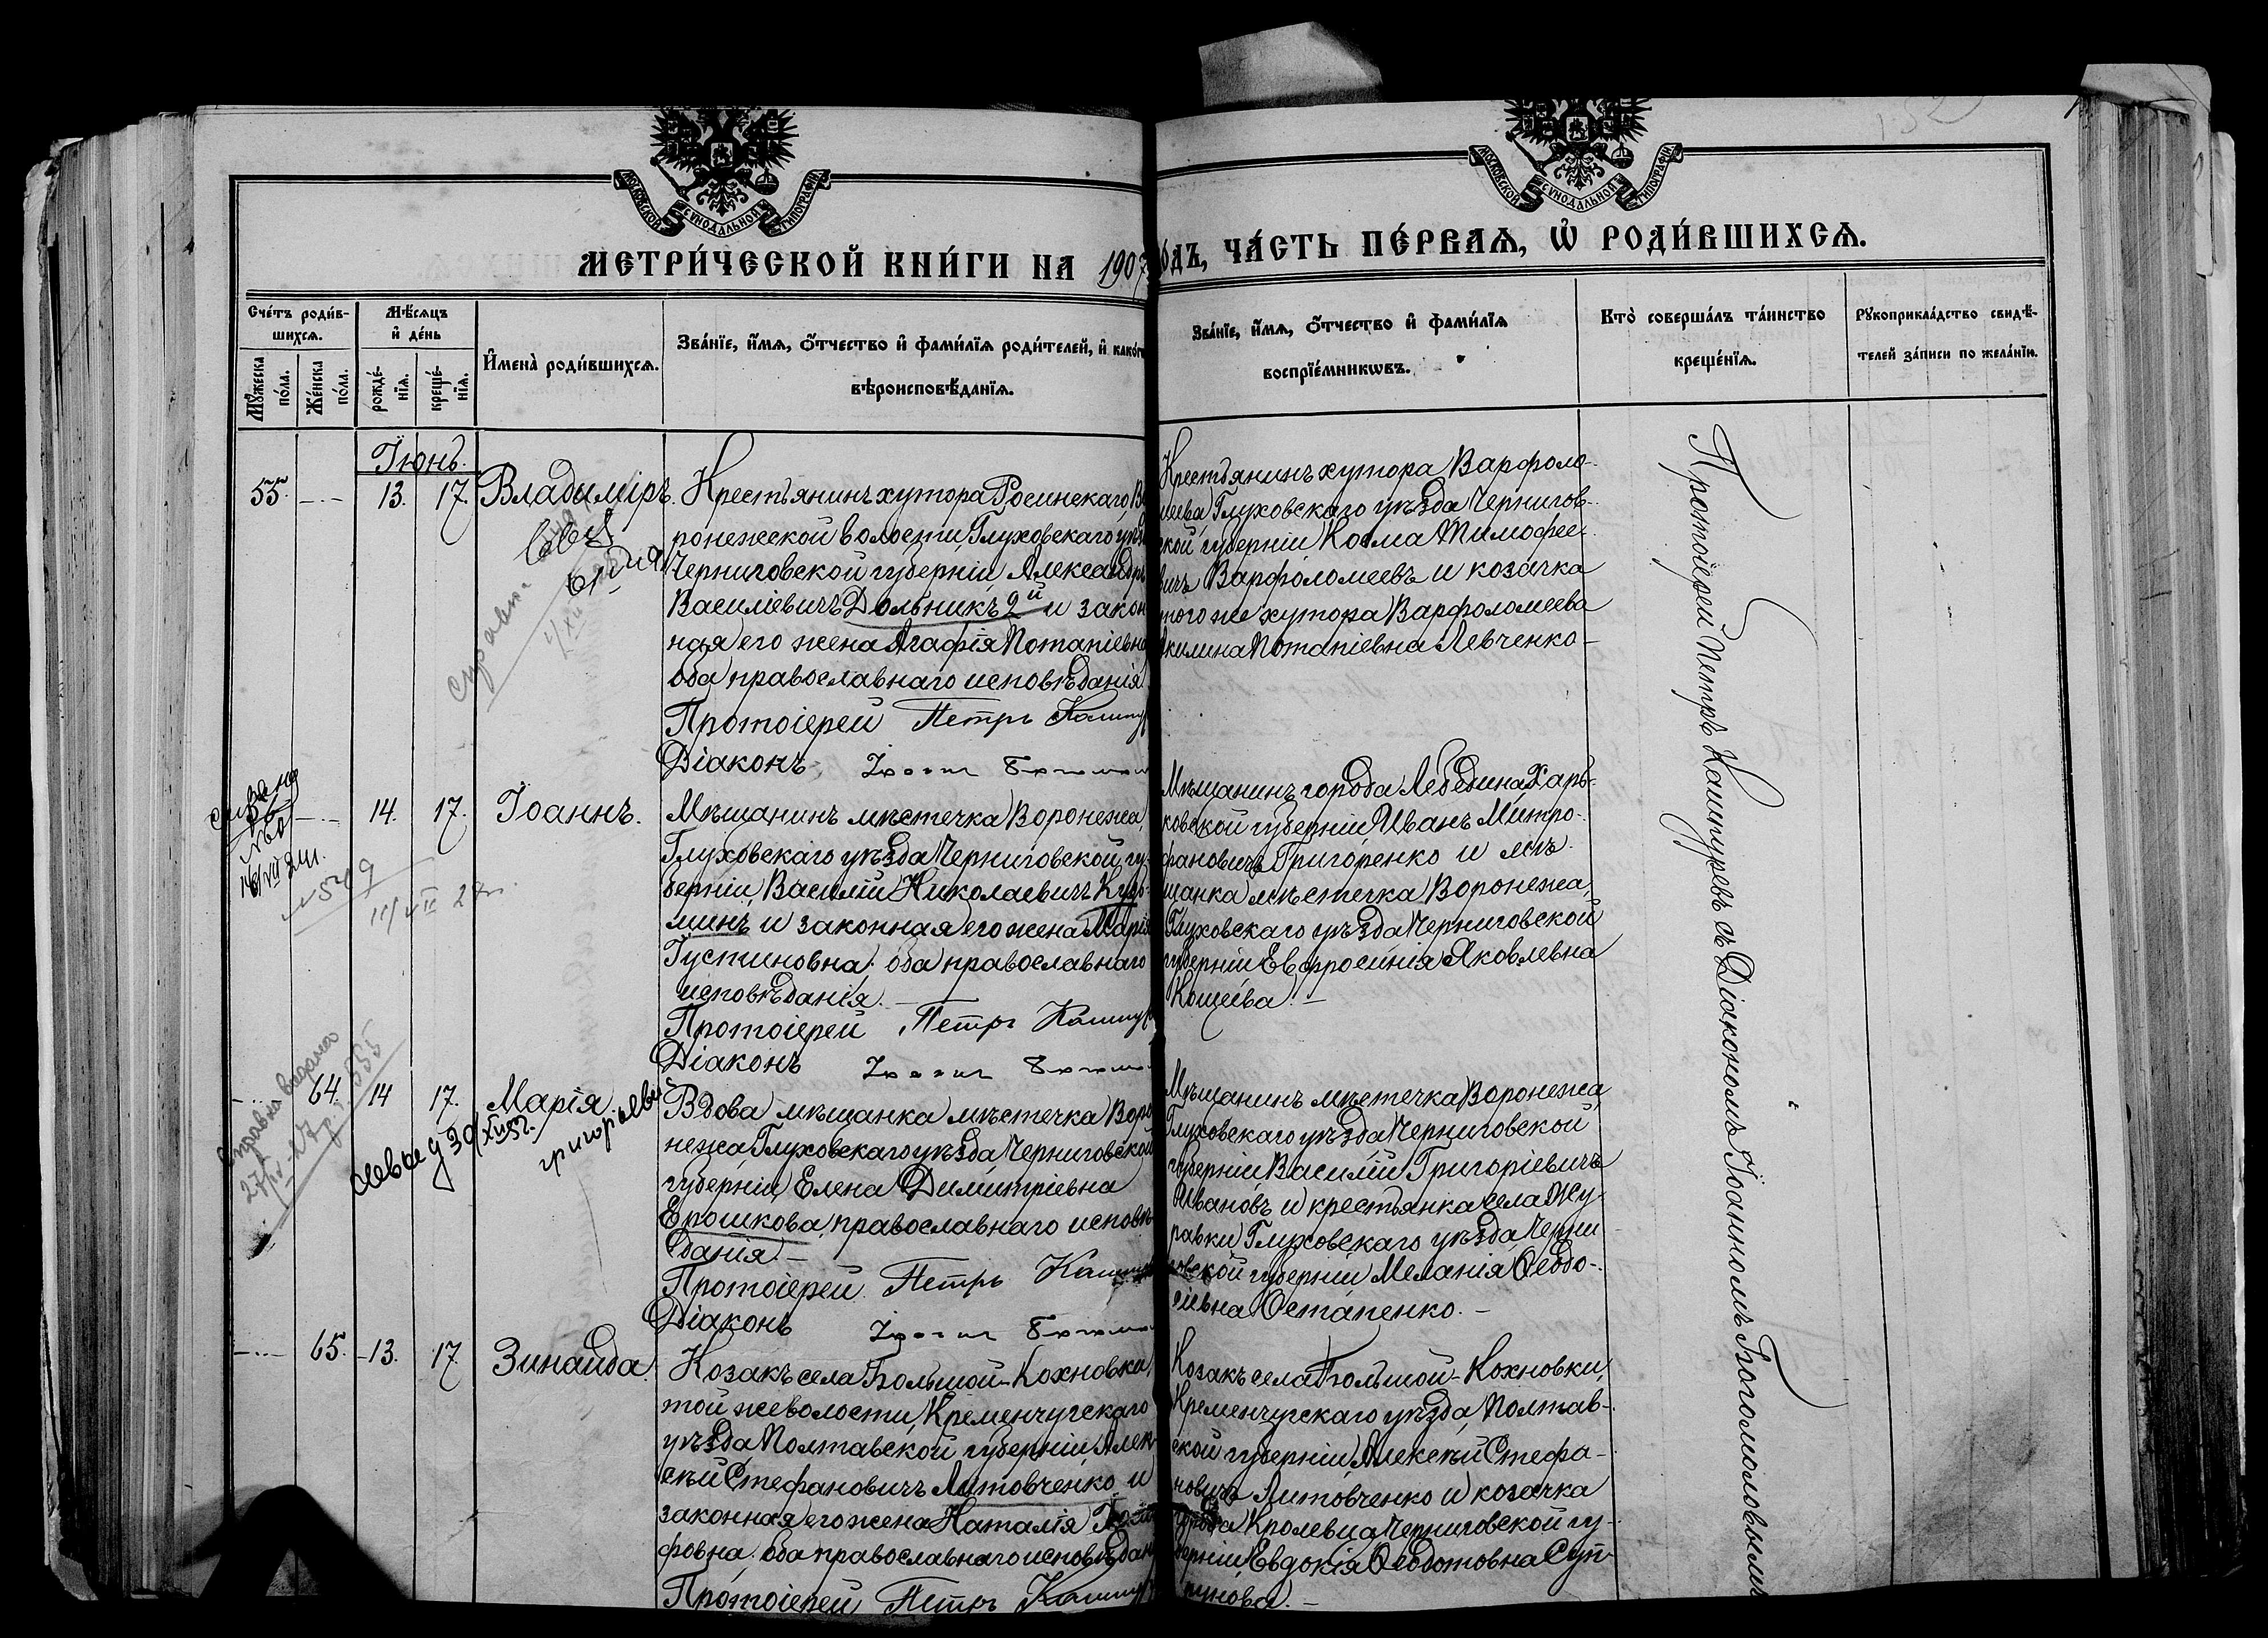 МОСКОВСКОЙ СѴНОДАЛЬНОЙ ТИПОГРАФІИ
МОСКОВСКОЙ СѴНОДАЛЬНОЙ ТИПОГРАФІИ
МЕТРИ́ЧЕСКОЙ КНИ́ГИ НА 1907
О́ДЪ, ЧА́СТЬ ПЕ́РВАѦ, Ѡ҆ РОДИ́ВШИХСѦ.
Сче́тъ роди́в-
шихсѧ.
Мꙋ́жеска
по́ла.
Же́нска
по́ла.
Мѣ́сѧцъ
и҆ де́нь
рожде́-
нїѧ.
креще́-
нїѧ.
И҆мена̀ роди́вшихсѧ.
Зва́нїе, и҆́мѧ, ѻ҆́тчество и҆ фами́лїѧ роди́телей, и҆ како́гѡ
вѣроисповѣ́данїѧ.
Зва́нїе, и҆́мѧ, ѻ҆́тчество и҆ фами́лїѧ
воспрїе́мникѡвъ.
Кто̀ соверша́лъ та́инство
креще́нїѧ.
Рꙋкоприкла́дство свидѣ́-
телей за́писи по жела́нїю.
Іюнь.
55. 13. 17. Владиміръ.
Крестьянинъ хутора Росинскаго, Во
ронежской волости, Глуховскаго уѣз
Черниговской губерніи, Александръ
Василіевичъ Дольникъ 2й и закон
ная его жена Агафія Потапіевна
оба православнаго исповѣданія
Протоіерей Петръ Кашпур
Діаконъ
Крестьянинъ хутора Варфоло-
меева, Глуховскаго уѣзда Чернигов-
ской губерніи Косма Тимофее-
вичъ Варфоломеевъ и козачка
того же хутора Варфоломеева
Акилина Потапіевна Левченко –
14. 17. Іоаннъ.
Мѣщанинъ мѣстечка Воронежа,
Глуховскаго уѣзда Черниговской гу-
берніи, Василій Николаевичъ Кузь-
минъ и законная его жена Марія
Іустиновна; оба православнаго
исповѣданія. –
Протоіерей Петръ Кашпур
Діаконъ
Мѣщанинъ города Лебедина Харь-
ковской губерніи Иванъ Митро-
фановичъ Григоренко и мѣ-
щанка мѣстечка Воронежа,
Глуховскаго уѣзда Черниговской
губерніи Евфросинія Яковлевна
Кошеева. –
№ 549
64. 14 17. Марія
григорьевн
Вдова мѣщанка мѣстечка Воро
нежа, Глуховскаго уѣзда, Черниговской
губерніи, Елена Димитріевна
Ерошкова, православнаго исповѣ
данія. –
Протоіерей Петръ Кашпур
Діаконъ
Мѣщанинъ мѣстечка Воронежа
Глуховскаго уѣзда Черниговской
губерніи Василій Григоріевичъ
Ивановъ и крестьянка села Жу-
равки Глуховскаго уѣзда Черни
говской губерніи Меланія Ѳеодо-
сіевна Остапенко. –
65. 13. 17. Зинаида.
Козакъ села Большой-Кохновки,
той же волости, Кременчугскаго
уѣзда Полтавской губерніи, Алек
сѣй Стефановичъ Литовченко и
законная его жена Наталія
фовна; оба православнаго исповѣдан
Протоіерей Петръ Кашпур
Козакъ села Большой-Кохновки,
Кременчугскаго уѣзда, Полтав-
ской губерніи, Алексѣй Стефа-
новичъ Литовченко и козачка
города Кролевца Черниговской гу-
берніи Евдокія Ѳеодотовна Суп-
рунова. –
Протоіерей Петръ Кашпуревъ съ Діакономъ Іоанномъ Богомоловымъ